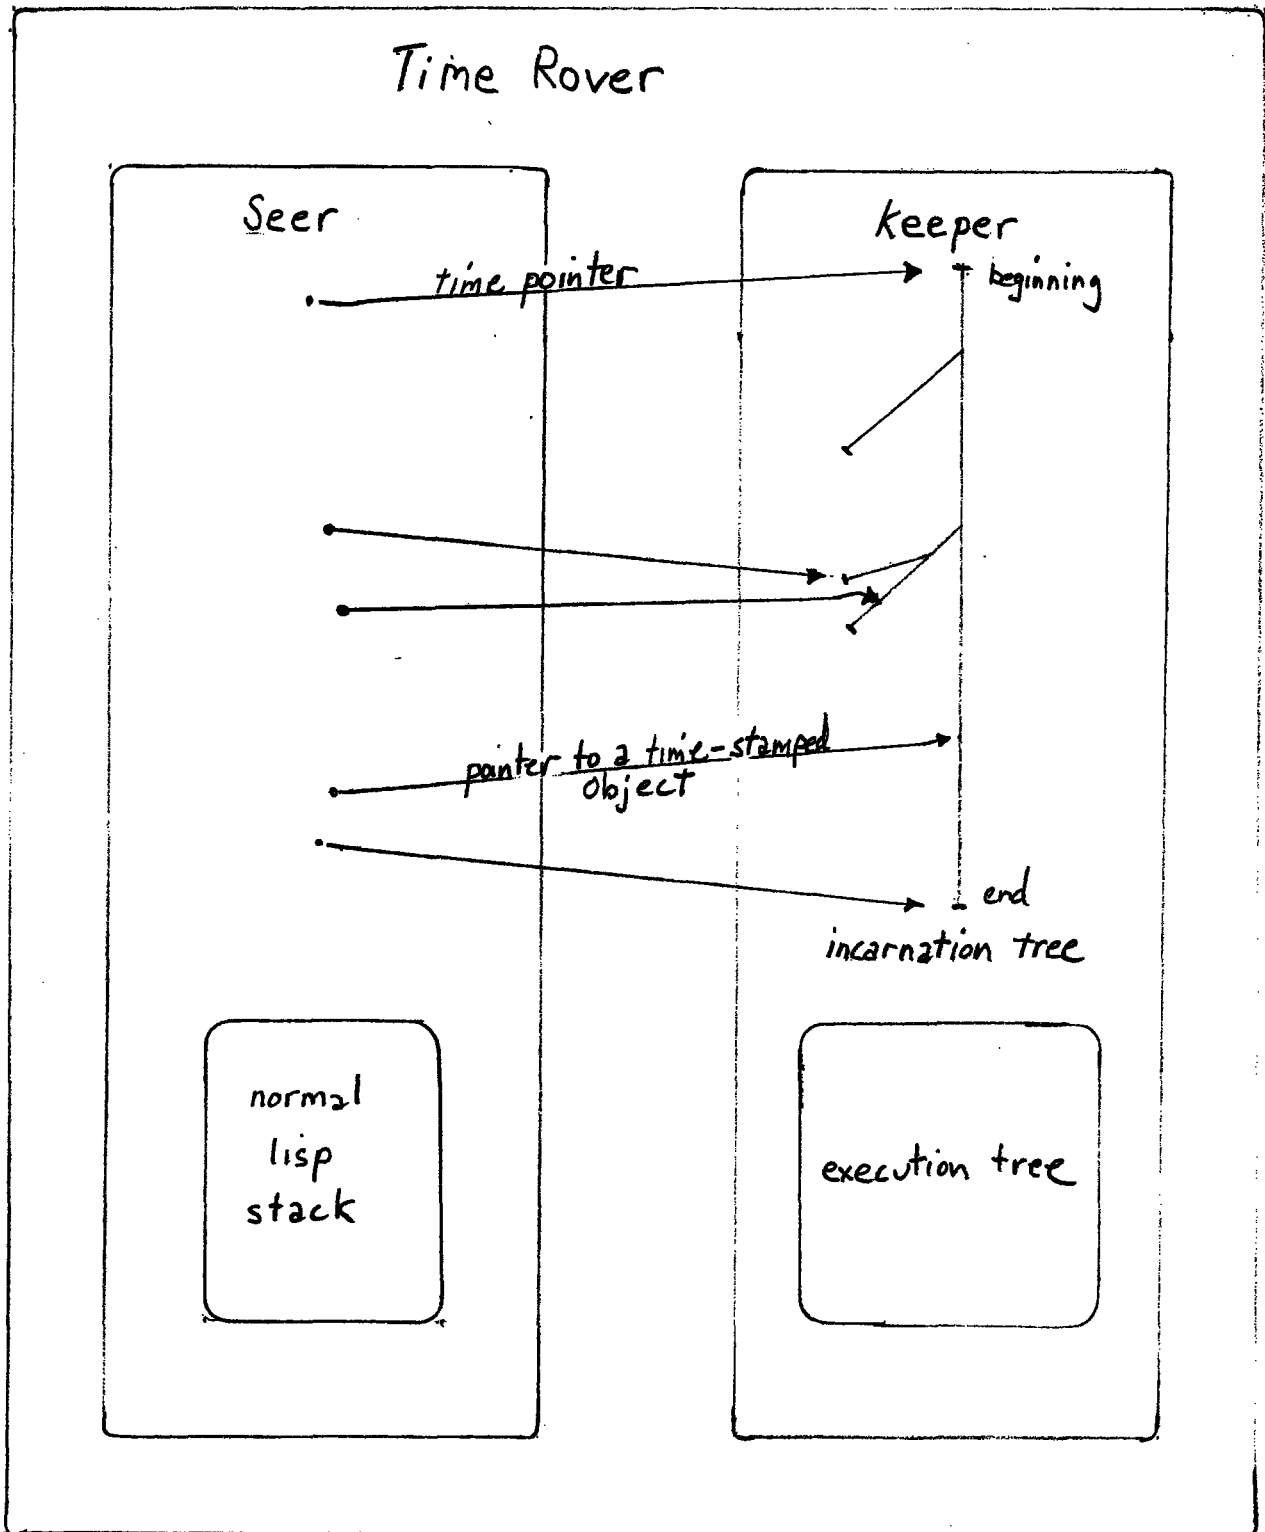 Time Rover
Seer
keeper
time pointer
beginning
pointer to a time-stamped
object
end
incarnation tree
normal
lisp
stack
execution tree